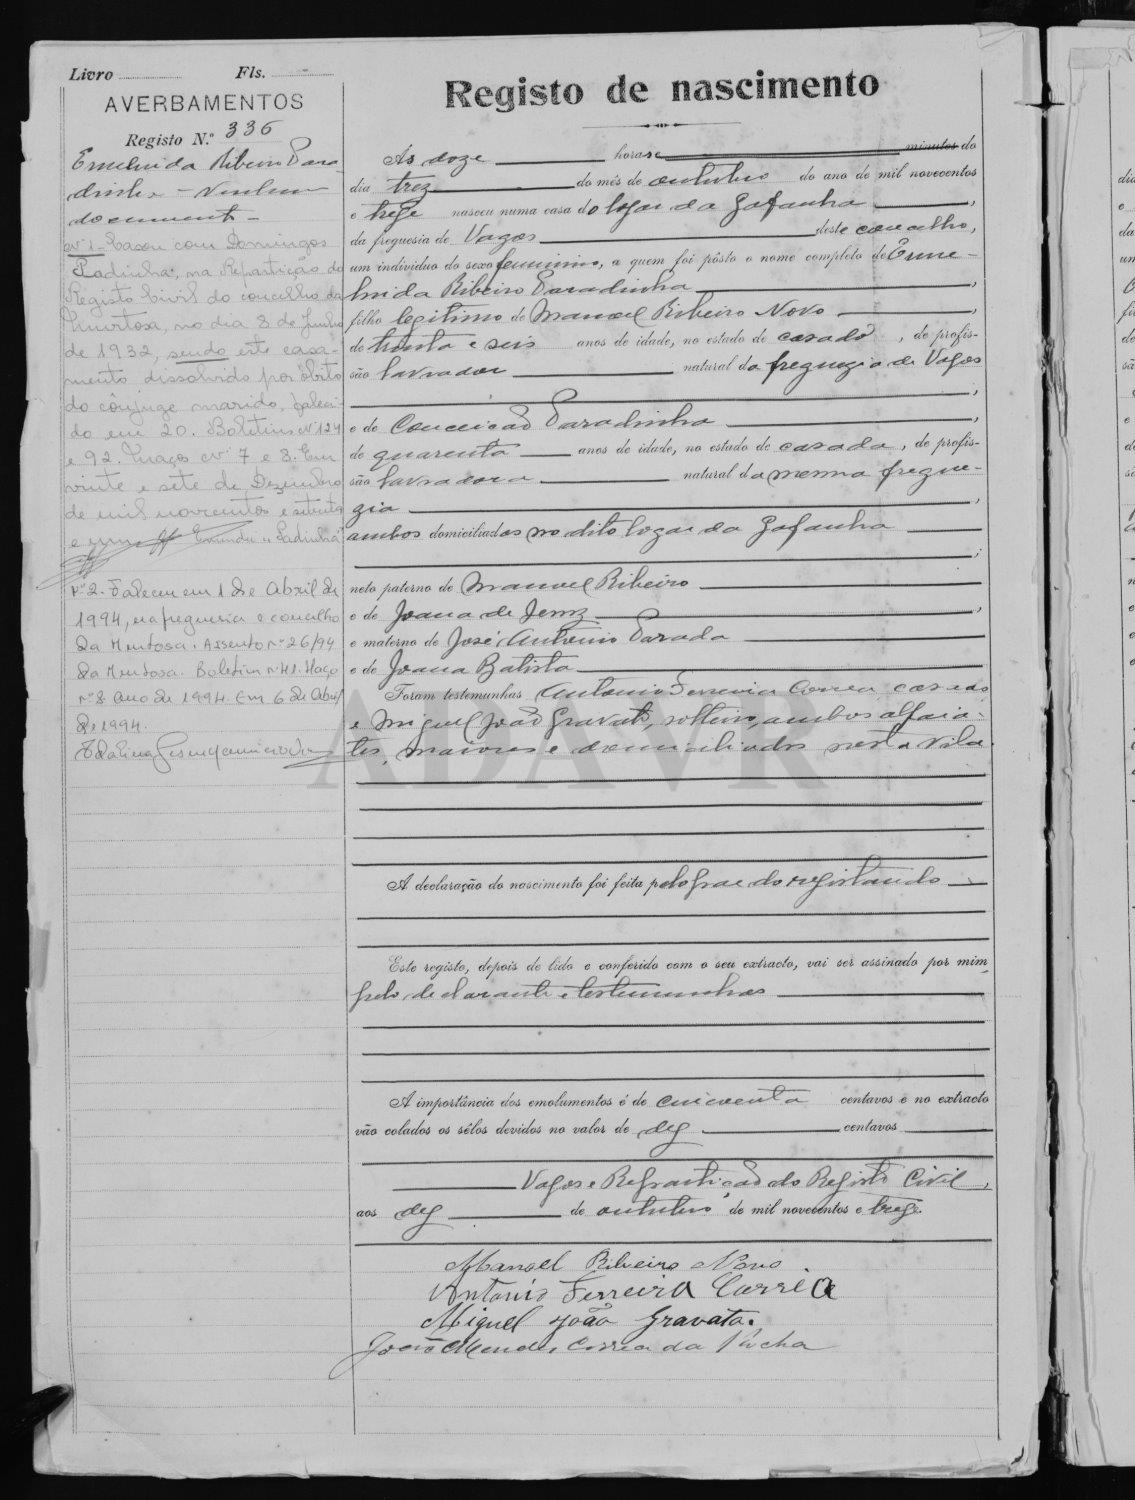 Livro Fls.
AVERBAMENTOS
Registo N.º 336
Ermelinda Ribeiro Para-
dinha - Nenhum
documento -
Nº 1 - Casou com Domingos
Padinha, na Repartição do
Registo Civil do concelho da
Murtosa, no dia 8 de Junho
de 1932, sendo este casa-
mento dissolvido por óbito
do cônjuge marido, faleci-
do em 20. Boletins Nº 124
e 92. Maços Nº 7 e 8. Em
vinte e sete de Dezembro
de mil novecentos e setenta
e um
Nº 2. Faleceu em 1 de Abril de
1994, na freguesia e concelho
da Murtosa. Assento nº 26/94
da Murtosa. Boletim nº 41. Maço
nº 8 Ano de 1994. Em 6 de Abril
de 1994.
Registo de nascimento
Ás doze horas e minutos do
dia trez do mês de outubro do ano de mil novecentos
e treze nasceu numa casa do logar da Gafanha,
da freguesia de Vagos deste concelho,
um individuo do sexo feminino, a quem foi pôsto o nome completo de Erme-
linda Ribeiro Paradinha,
filho legitimo de Manoel Ribeiro Novo,
de trinta e seis anos de idade, no estado de casado, de profis-
são lavrador natural da freguezia de Vagos
;
e de Conceição Paradinha,
de quarenta anos de idade, no estado de casada, de profis-
são lavradora natural da mesma fregue-
zia,
ambos domiciliados no dito logar da Gafanha
;
neto paterno de Manuel Ribeiro
e de Joana de Jesuz,
e materno de José Antonio Parada
e de Joana Batista
Foram testemunhas Antonio Ferreira Correa casado
e Miguel João Gravato, solteiro, ambos alfaia-
tes, maiores e domiciliados nesta vila.
ADAVR
A declaração do nascimento foi feita pelo pae do registando
Este registo, depois de lido e conferido com o seu extracto, vai ser assinado por mim,
pelo declarante e testemunhas
A importância dos emolumentos é de cincoenta centavos e no extracto
vão colados os sêlos devidos no valor de dez centavos
Vagos e Repartição do Registo Civil,
aos dez de outubro de mil novecentos e treze.
Manoel Ribeiro Novo
Antonio Ferreira Corrêa
Miguel João Gravato.
João Mendes Correa da Rocha